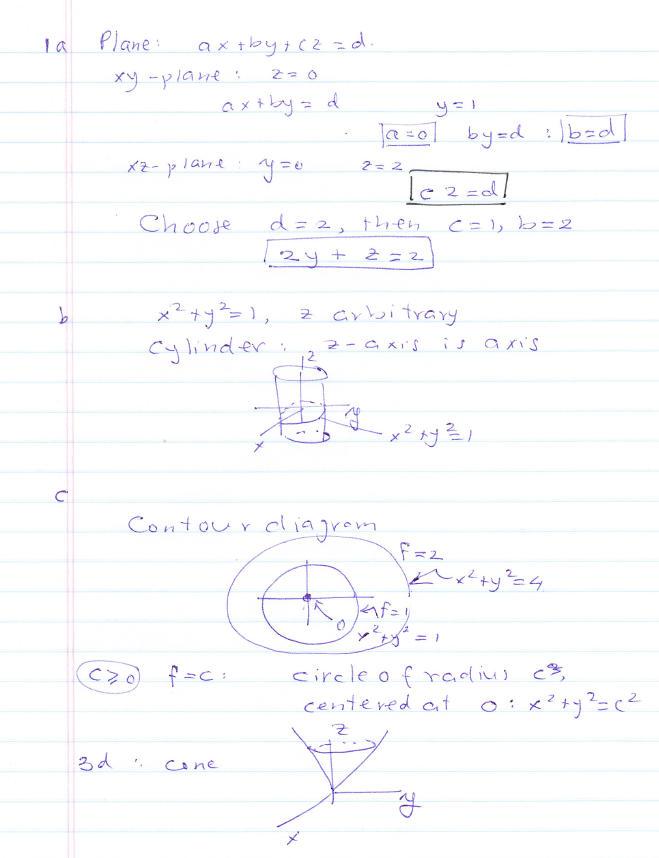 1a Plane: ax+by+cz=d.
xy-plane: z=0
ax+by=d y=1
a=0 by=d : b=d
xz-plane: y=0 z=2
c2=d
Choose d=2, then c=1, b=2
2y+z=2
b x²+y²=1, z arbitrary
Cylinder: z-axis is axis
z
y
x
x²+y²=1
c
Contour diagram
f=2
x²+y²=4
f=1
0
x²+y²=1
c≥0 f=c: circle of radius c,
centered at 0: x²+y²=c²
z
3d: cone
y
x